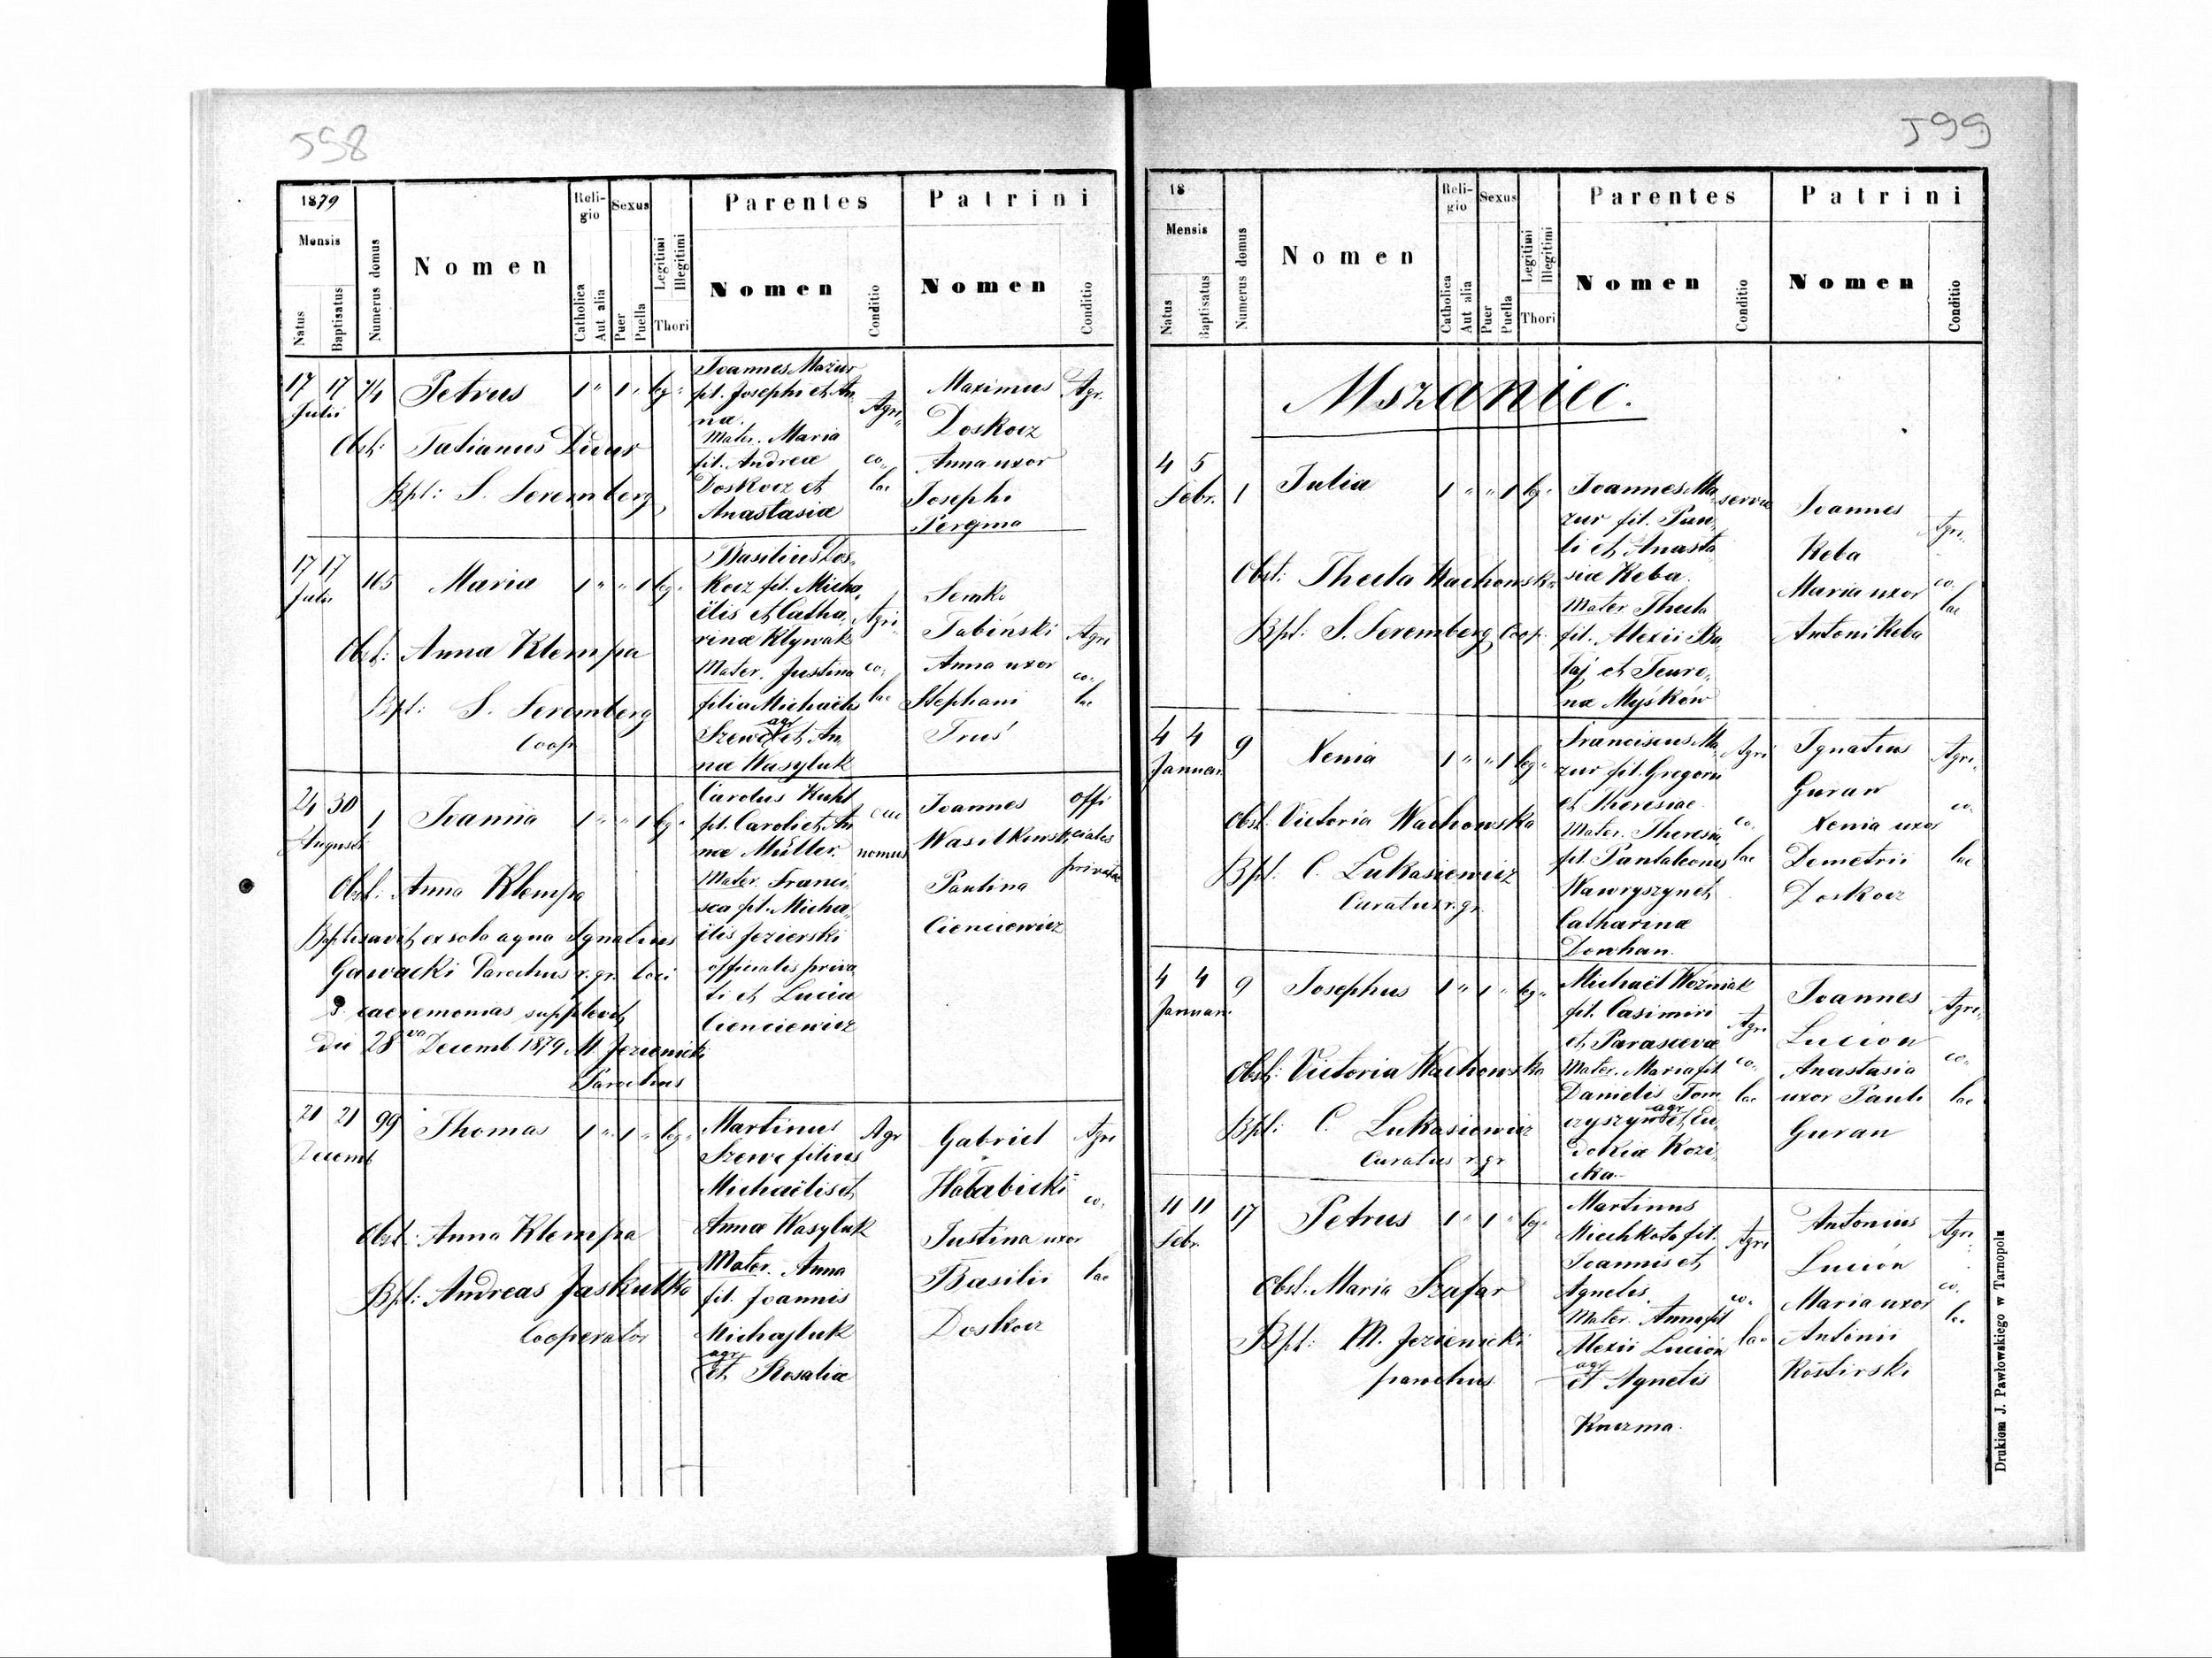 598
1879
Mensis
Natus
Baptisatus
Numerus domus
Nomen
Religio
Catholica
Aut alia
Sexus
Puer
Puella
Legitimi
Illegitimi
Thori
Parentes
Nomen
Conditio
Patrini
Nomen
Conditio
17 17 74 Petrus 1 " 1 " leg:
Julii
Obst: Tatianus
Bpt: S. Seremberg
Joannes Mazur
fil. Josephi et An
næ.
Mater. Maria
fil. Andreæ
Doskocz et
Anastasiæ
Agri
co
lae
Maximus
Doskocz
Anna uxor
Josephi
Agr.
17 17 165 Maria 1 " " 1 leg:
Julii
Obst: Anna Klempa
Bpt: S. Seremberg
Coop
Basilius Dos
kocz fil. Micha
ëlis et Catha
rinæ Klywak
Mater. Justina
filia Michaëlis
Szewc agr et An
næ Wasyluk
Agri
co
lae
Semko
Anna uxor
Stephani
Truś
Agri
co
lae
24 30 1 Joanna 1 " " 1 leg:
Augusti
Obst: Anna Klempa
Bptisavit ex sola aqua Ignatius
Gawacki Parochus r. gr. loci
caeremonias supplevit
Die 28va Decemb. 1879. M. Jezienicki
Parochus
Carolus Kuhl
fil. Caroli et An
næ Müller.
Mater. Franci
sca fil. Micha
ëlis Jezierski
officialis priva
ti et Luciæ
Cienciewicz
nomus
Joannes
Wasilkowski
Paulina
Cienciewicz
offi
ciales
privati
21 21 99 Thomas 1 " 1 " leg:
Decemb
Obst: Anna Klempa
Bpt: Andreas Jaskulka
Cooperator
Martinus
Szewc filius
Michaëlis et
Annæ Wasyluk
Mater. Anna
fil. Joannis
Michajluk
agr
et Rosaliæ
Agr
Gabriel
Hołabicki
Justina uxor
Basilii
Doskocz
Agri
co
lae
599
18
Mensis
Natus
Baptisatus
Numerus domus
Nomen
Religio
Catholica
Aut alia
Sexus
Puer
Puella
Legitimi
Illegitimi
Thori
Parentes
Nomen
Conditio
Patrini
Nomen
Conditio
Mszaniec.
4 5 1 Julia 1 " " 1 leg:
Febr.
Obst: Thecla Wachowska
Bpt: S. Seremberg Coop.
Joannes Ma
zur fil. Pau
li et Anasta
siæ Keba.
Mater Thecla
fil. Alexii Ba
taj et Feuro
næ Myśków
Joannes
Keba
Maria uxor
Antoni Keba
Agri
co
lae
4 4 9 Xenia 1 " " 1 leg:
Januar.
Obst: Victoria Wachowska
Bpt: C. Lukasiewicz
Curatus r. gr.
Franciscus Ma
zur fil. Gregorii
et Theresiae
Mater. Theresia
fil. Pantaleonis
Wawryszyn et
Catharinæ
Agri
co
lae
Ignatius
Guran
Xenia uxor
Demetrii
Doskocz
Agri
co
lae
4 4 9 Josephus 1 " 1 " leg:
Januar.
Obst: Victoria Wachowska
Bpt: C. Lukasiewicz
Curatus r. gr
Michaël Woźniak
fil. Casimiri
et Parascevæ
Mater. Maria fil.
Danielis Tom
czyszyn agr et Eu
dokiæ Kozi
cka
Agri
co
lae
Joannes
Lucion
Anastasia
uxor Pauli
Guran
Agri
co
lae
11 11 17 Petrus 1 " 1 " leg:
Febr.
Obst: Maria Szafar
Bpt: M. Jezienicki
parochus
Martinus
Miechkota fil.
Joannis et
Agnetis
Mater. Anna fil
Alexii Lución
agr
et Agnetis
Kuczma.
Agri
co
lae
Antonius
Lución
Maria uxor
Antinii
Kostirski
Agri
co
lae
Drukiem J. Pawłowskiego w Tarnopolu